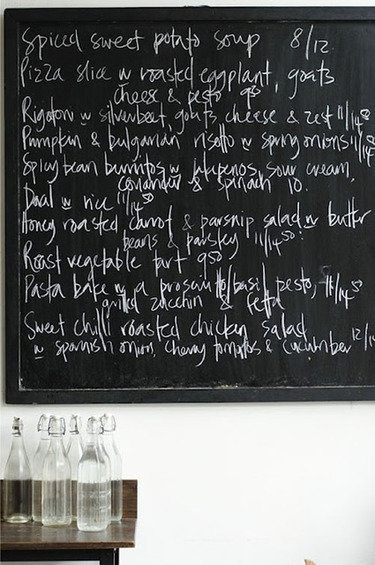 Spiced sweet potato soup 8/12
Pizza slice w roasted eggplant, goats
cheese & pesto 9.50
Rigatoni w silverbeet, goats cheese & zest 11/14.50
Pumpkin & bulgarian risotto w spring onions 11/14.50
Spicy bean burritos w jalapenos, sour cream,
coriander & spinach 10.
Daal w rice 11/14.50
Honey roasted carrot & parsnip salad w butter
beans & parsley 11/14.50
Roast vegetable tart 9.50
Pasta bake w a prosciutto/basil pesto, 11/14.50
grilled zucchini & fetta
Sweet chilli roasted chicken salad
w spanish onion, cherry tomatoes & cucumber 12/